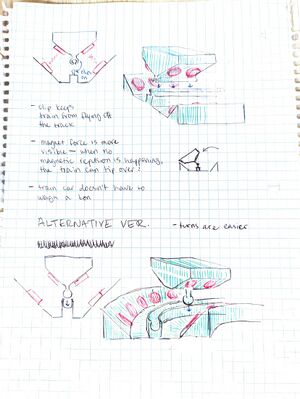 clip on
- clip keeps
train from flying off
the track
- magnet force is more
visible — when no
magnetic repulsion is happening,
the train can tip over!
- train car doesn't have to
weigh a ton
ALTERNATIVE VER.
- turns are easier